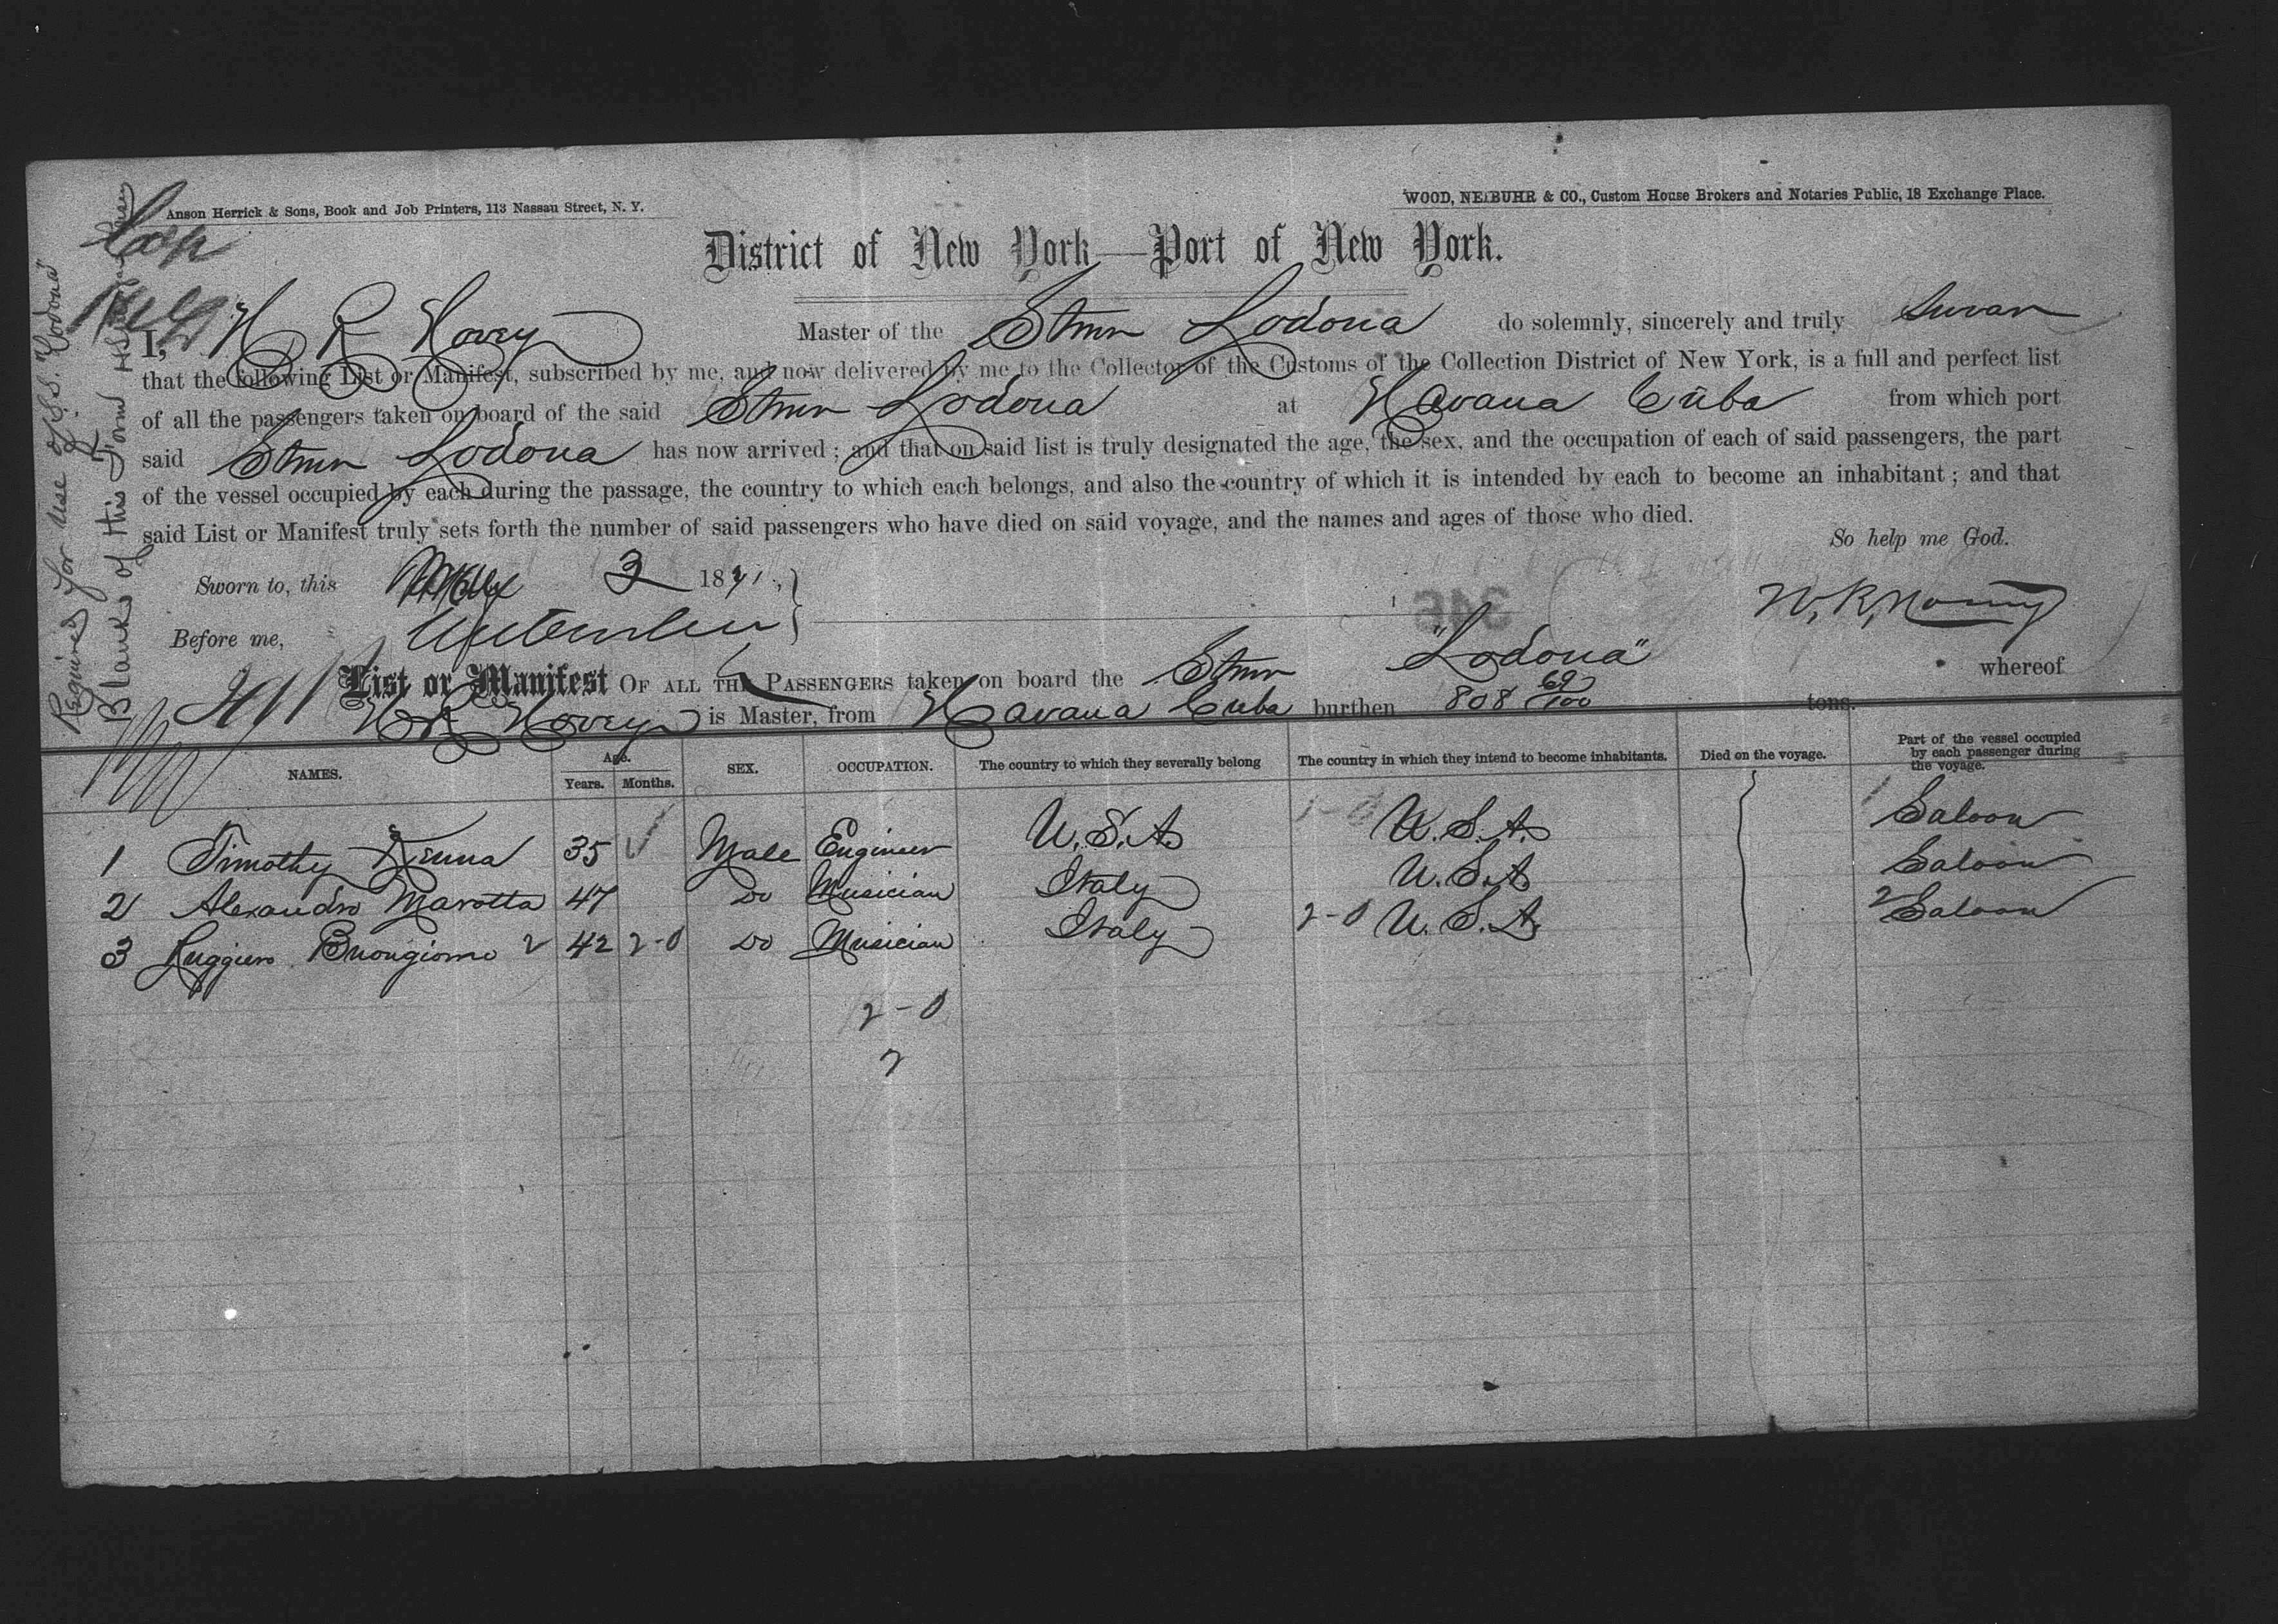 Anson Herrick & Sons, Book and Job Printers, 113 Nassau Street, N. Y.
WOOD, NEIBUHR & CO., Custom House Brokers and Notaries Public, 18 Exchange Place.
District of New York—Port of New York.
I, W R Hovey Master of the Stmr Lodona do solemnly, sincerely and truly Swear
that the following List or Manifest, subscribed by me, and now delivered by me to the Collector of the Customs of the Collection District of New York, is a full and perfect list
of all the passengers taken on board of the said Stmr Lodona at Havana Cuba from which port
said Stmr Lodona has now arrived ; and that on said list is truly designated the age, the sex, and the occupation of each of said passengers, the part
of the vessel occupied by each during the passage, the country to which each belongs, and also the country of which it is intended by each to become an inhabitant ; and that
said List or Manifest truly sets forth the number of said passengers who have died on said voyage, and the names and ages of those who died.
So help me God.
Sworn to, this 3 1871.
Before me,
W. R. Hovey
346
List or Manifest OF ALL THE PASSENGERS taken on board the Stmr "Lodona" whereof
W R Hovey is Master, from Havana Cuba burthen 808 69/100 tons.
Required for use of S.S. "Lodona"
Blanks of this Form
NAMES. Age. Years. Months. SEX. OCCUPATION. The country to which they severally belong The country in which they intend to become inhabitants. Died on the voyage. Part of the vessel occupied by each passenger during the voyage.
1 Timothy Kenna 35 Male Engineer U.S.A. 1-0 U.S.A. 1 Saloon
2 Alexandro Marotta 47 Do Musician Italy U.S.A Saloon
3 Ruggiero Buongiorno 2 42 2-0 Do Musician Italy 2-0 U.S.A. 2 Saloon
2-0
2